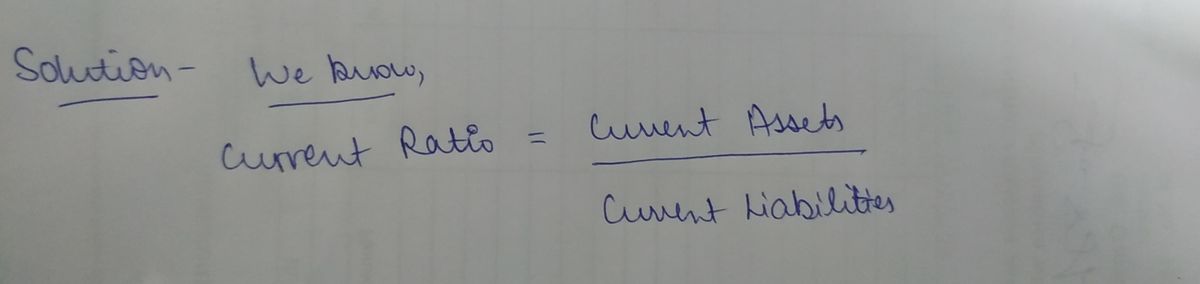 Solution - We know,
Current Ratio = Current Assets
Current Liabilities